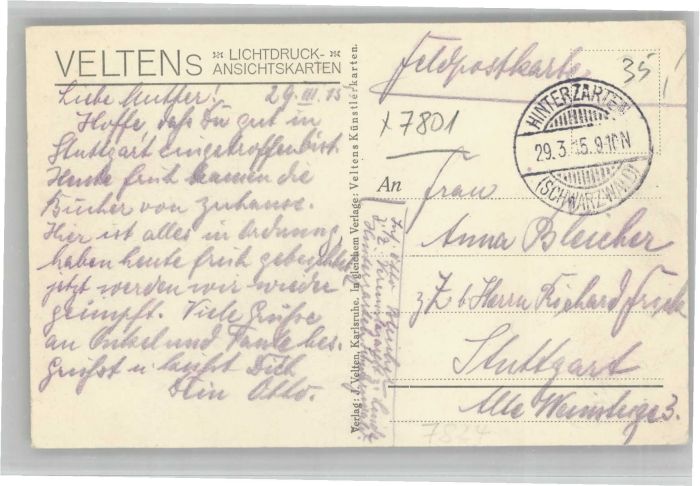 VELTENs LICHTDRUCK-
ANSICHTSKARTEN
Liebe Mutter! 29.III.15
Hoffe, daß Du gut in
Stuttgart eingetroffen bist.
Heute früh kamen die
Bücher von zuhause.
Hier ist alles in Ordnung
haben heute früh
jetzt werden wir wieder
geimpft. Viele Grüße
an Onkel und Tante bes.
Grüßt u küßt Dich
Dein Otto.
Verlag: J. Velten, Karlsruhe. In gleichem Verlage: Veltens Künstlerkarten.
Feldpostkarte
35,!
x7801
HINTERZARTEN
29.3.15.9-10N
(SCHWARZWALD)
An
Frau
Anna Bleicher
z Z b Herrn Richard
Stuttgart
Alte Weinsteige 3.
7824